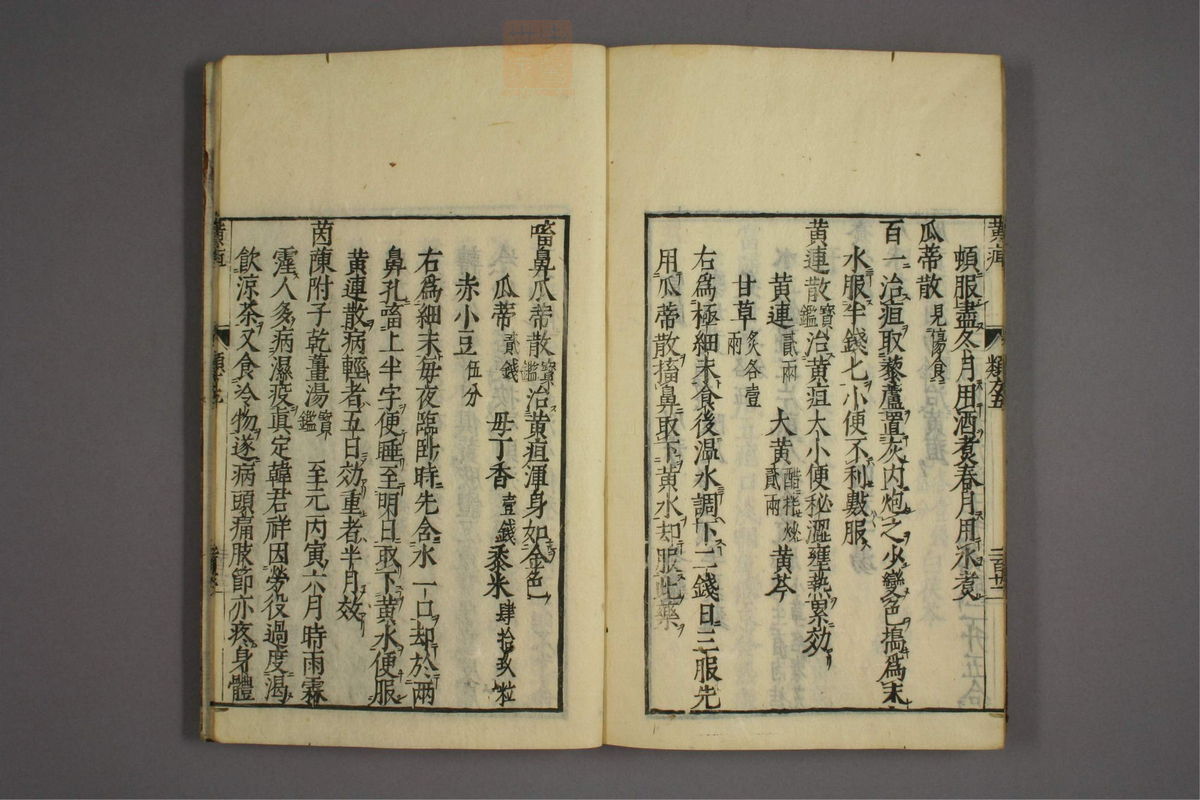 黄疸
類方五
頓服盡冬月用酒煮春月用水煮
瓜蒂散見傷食
百一治疸取藜蘆置灰内炮之少變色搗為末
水服半錢匕小便不利數服
黄連散寳鑑治黄疸大小便秘澀壅熱累効
黄連貳兩 大黄醋拌炒貳兩 黄芩
甘草炙各壹兩
右為極細末食後溫水調下二錢日三服先
用瓜蒂散搐鼻取下黄水却服此藥
㗜鼻瓜蒂散寳鑑治黄疸渾身如金色
瓜蒂貳錢 母丁香壹錢 黍米肆拾玖粒
赤小豆伍分
右為細末每夜臨卧時先含水一口却於兩
鼻孔㗜上半字便睡至明日取下黄水便服
黄連散病輕者五日効重者半月效
茵蔯附子乾薑湯寳鑑 至元丙寅六月時雨霖
霪人多病濕疫眞定韓君祥因勞役過度渴
飲涼茶又食冷物遂病頭痛肢節亦疼身體
黄疸